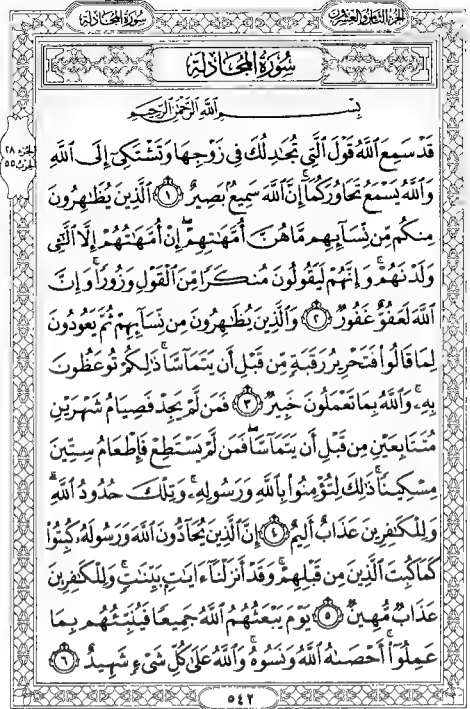 الجزء الثامن والعشرون
سورة المجادلة
سُورَةُ المُجَادلة
بِسْمِ ٱللَّهِ ٱلرَّحْمَٰنِ ٱلرَّحِيمِ
الجزء ٢٨
الحزب ٥٥
قَدْ سَمِعَ ٱللَّهُ قَوْلَ ٱلَّتِى تُجَٰدِلُكَ فِى زَوْجِهَا وَتَشْتَكِىٓ إِلَى ٱللَّهِ
وَٱللَّهُ يَسْمَعُ تَحَاوُرَكُمَآ ۚ إِنَّ ٱللَّهَ سَمِيعٌۢ بَصِيرٌ ١ ٱلَّذِينَ يُظَٰهِرُونَ
مِنكُم مِّن نِّسَآئِهِم مَّا هُنَّ أُمَّهَٰتِهِمْ ۖ إِنْ أُمَّهَٰتُهُمْ إِلَّا ٱلَّٰٓـِٔى
وَلَدْنَهُمْ ۚ وَإِنَّهُمْ لَيَقُولُونَ مُنكَرًا مِّنَ ٱلْقَوْلِ وَزُورًا ۚ وَإِنَّ
ٱللَّهَ لَعَفُوٌّ غَفُورٌ ٢ وَٱلَّذِينَ يُظَٰهِرُونَ مِن نِّسَآئِهِمْ ثُمَّ يَعُودُونَ
لِمَا قَالُوا۟ فَتَحْرِيرُ رَقَبَةٍ مِّن قَبْلِ أَن يَتَمَآسَّا ۚ ذَٰلِكُمْ تُوعَظُونَ
بِهِۦ ۚ وَٱللَّهُ بِمَا تَعْمَلُونَ خَبِيرٌ ٣ فَمَن لَّمْ يَجِدْ فَصِيَامُ شَهْرَيْنِ
مُتَتَابِعَيْنِ مِن قَبْلِ أَن يَتَمَآسَّا ۖ فَمَن لَّمْ يَسْتَطِعْ فَإِطْعَامُ سِتِّينَ
مِسْكِينًا ۚ ذَٰلِكَ لِتُؤْمِنُوا۟ بِٱللَّهِ وَرَسُولِهِۦ ۚ وَتِلْكَ حُدُودُ ٱللَّهِ ۗ
وَلِلْكَٰفِرِينَ عَذَابٌ أَلِيمٌ ٤ إِنَّ ٱلَّذِينَ يُحَآدُّونَ ٱللَّهَ وَرَسُولَهُۥ كُبِتُوا۟
كَمَا كُبِتَ ٱلَّذِينَ مِن قَبْلِهِمْ ۚ وَقَدْ أَنزَلْنَآ ءَايَٰتٍۭ بَيِّنَٰتٍ ۚ وَلِلْكَٰفِرِينَ
عَذَابٌ مُّهِينٌ ٥ يَوْمَ يَبْعَثُهُمُ ٱللَّهُ جَمِيعًا فَيُنَبِّئُهُم بِمَا
عَمِلُوٓا۟ ۚ أَحْصَىٰهُ ٱللَّهُ وَنَسُوهُ ۚ وَٱللَّهُ عَلَىٰ كُلِّ شَىْءٍ شَهِيدٌ ٦
٥٤٢